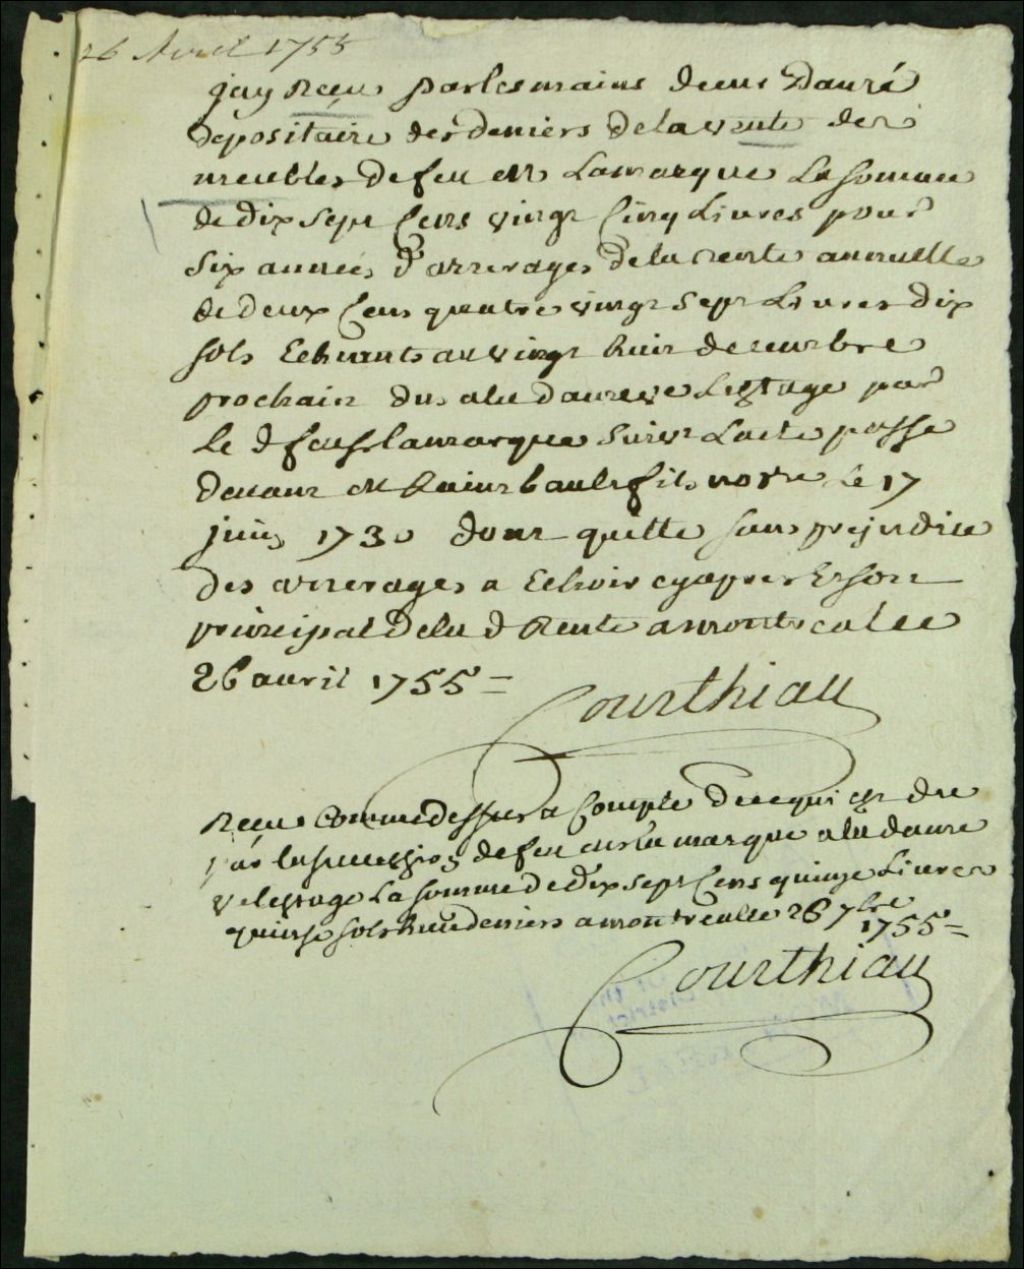 26 Avril 1755
jay Receu par les mains de mr Dauré
depositaire des deniers de la vente des
meubles de feu Mr Lamarque La somme
de dix sept Cens vingt Cinq Livres pour
six années d'arrerages de la rente annuelle
de deux Cens quatre vingt sept Livres dix
sols Echeants au vingt huit decembre
prochain dus a la dame ve Lestage par
Le d feu sr lamarque suivt Lacte passé
devant Me Raimbault fils nore le 17
juin 1730 dont quitte sans prejudice
des arrerages a Echoir cy apres Et son
principal de la d Rente a montreal ce
26 avril 1755 =
Courthiau
Receu Comme dessus a Compte de ce qui est du
par la succession de feu mr la marque a la dame
ve lestage La somme de dix sept Cens quinze Livres
quinze sols huit deniers a montreal le 26 7bre
1755 =
Courthiau